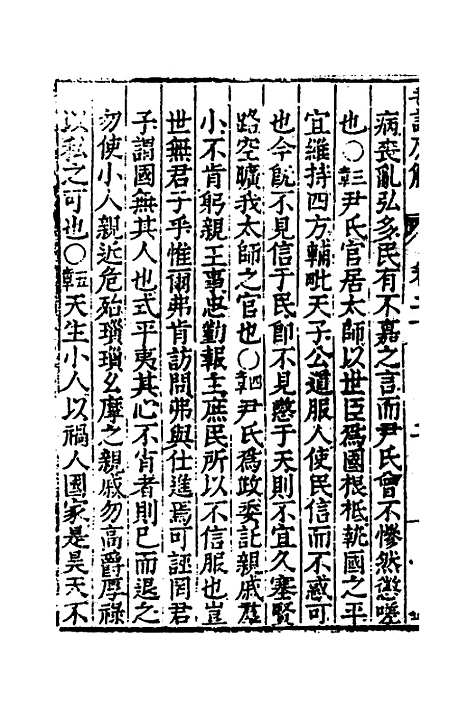 病喪亂弘多民有不嘉之言而尹氏曾不慘然懲嗟
也○三章尹氏官居太師以世臣爲國根柢秉國之平
宜維持四方輔毗天子公道服人使民信而不惑可
也今旣不見信于民卽不見愍于天則不宜久塞賢
路空曠我太師之官也○四章尹氏爲政委託親戚群
小不肯躬親王事忠勤報主庶民所以不信服也豈
世無君子乎惟爾弗肯訪問弗與仕進焉可誣罔君
子謂國無其人也式平夷其心不肖者則已而退之
勿使小人親近危殆瑣瑣幺麼之親戚勿高爵厚祿
以私之可也○五章天生小人以禍人國家是昊天不